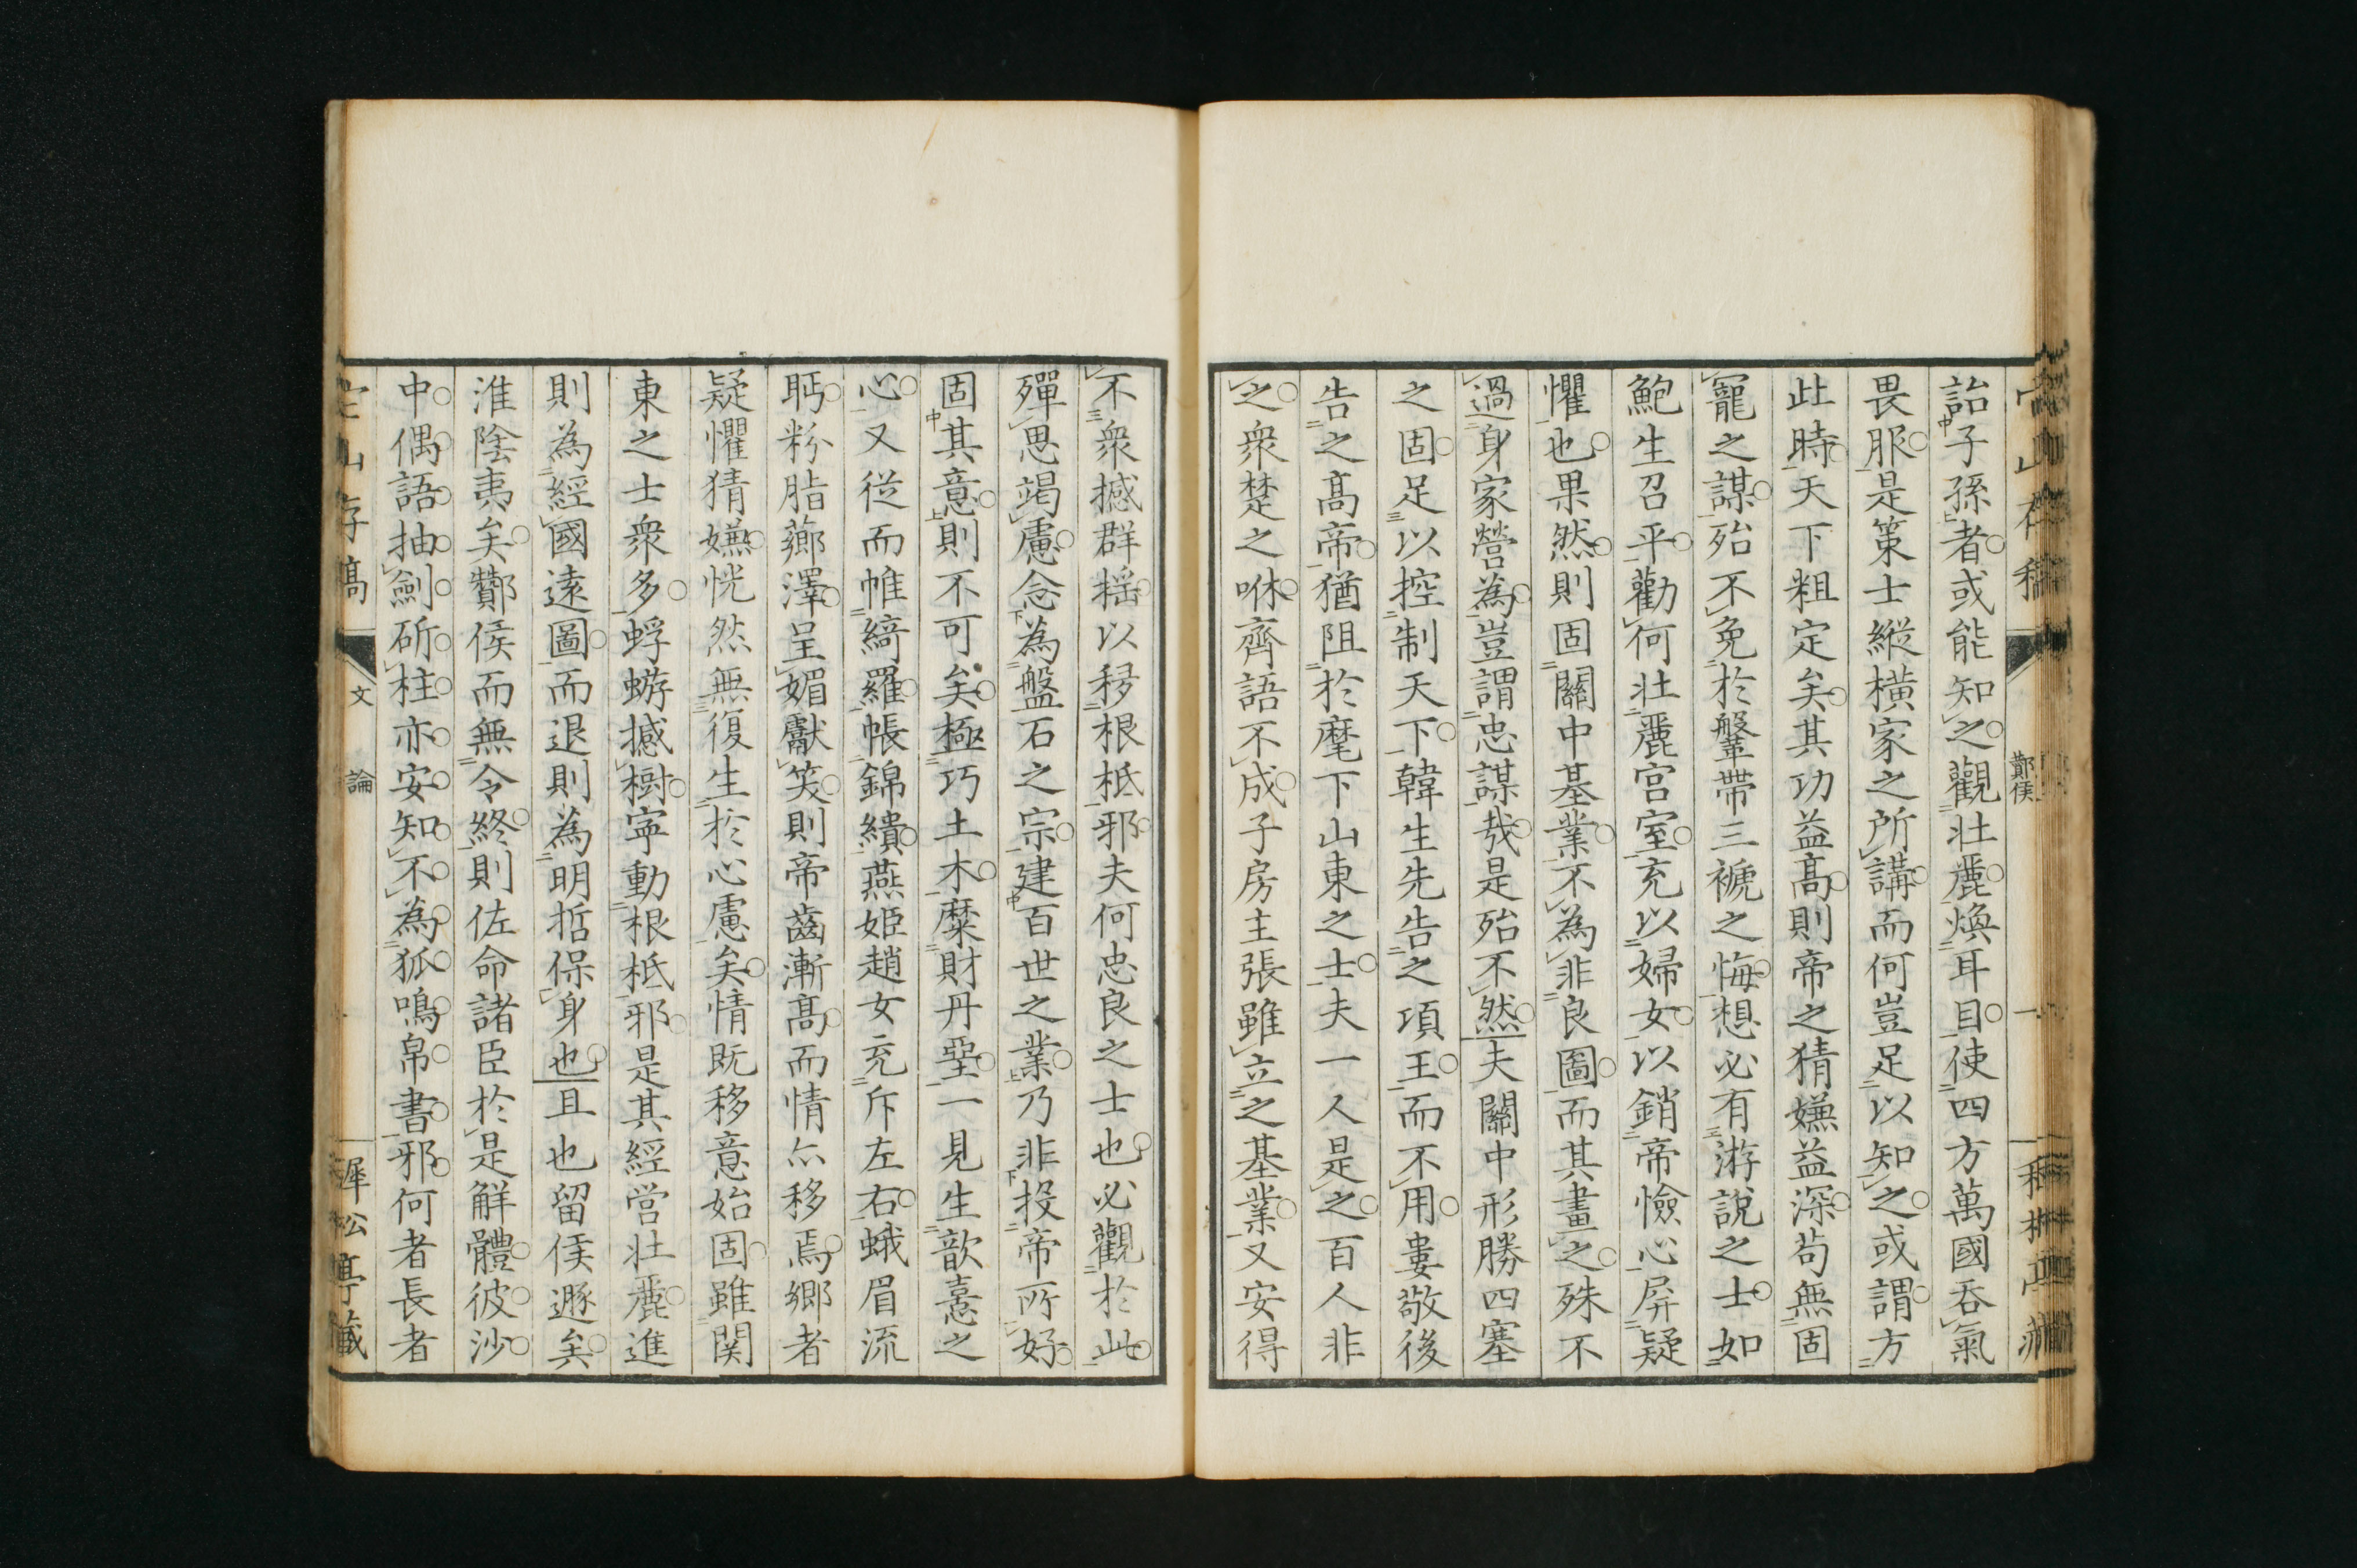 鄼侯
詒子孫者或能知之觀壯麗煥耳目使四方萬國吞氣
畏服是策士縱橫家之所講而何豈足以知之或謂方
此時天下粗定矣其功益高則帝之猜嫌益深茍無固
寵之謀殆不免於鞶帶三褫之悔想必有游說之士如
鮑生召平勸何壯麗宮室充以婦女以銷帝憸心屏疑
懼也果然則固關中基業不為非良圖而其畫之殊不
過身家營為豈謂忠謀哉是殆不然夫關中形勝四塞
之固足以控制天下韓生先告之項王而不用婁敬後
告之高帝猶阻於麾下山東之士夫一人是之百人非
之衆楚之咻齊語不成子房主張雖立之基業又安得
不衆撼群搖以移根柢邪夫何忠良之士也必觀於此
殫思竭慮念為盤石之宗建百世之業乃非投帝所好
固其意則不可矣極巧土木糜財丹堊一見生歆憙之
心又從而帷綺羅帳錦繢燕姬趙女充斥左右蛾眉流
眄粉脂薌澤呈媚獻笑則帝齒漸高而情亦移焉鄉者
疑懼猜嫌恍然無復生於心慮矣情既移意始固雖関
東之士衆多蜉蝣撼樹寧動根柢邪是其經営壯麗進
則為經國遠圖而退則為明哲保身也且也留侯遯矣
淮陰夷矣鄼侯而無令終則佐命諸臣於是解體彼沙
中偶語抽劍斫柱亦安知不為狐鳴帛書邪何者長者
山存稿
文
論
犀松亭藏